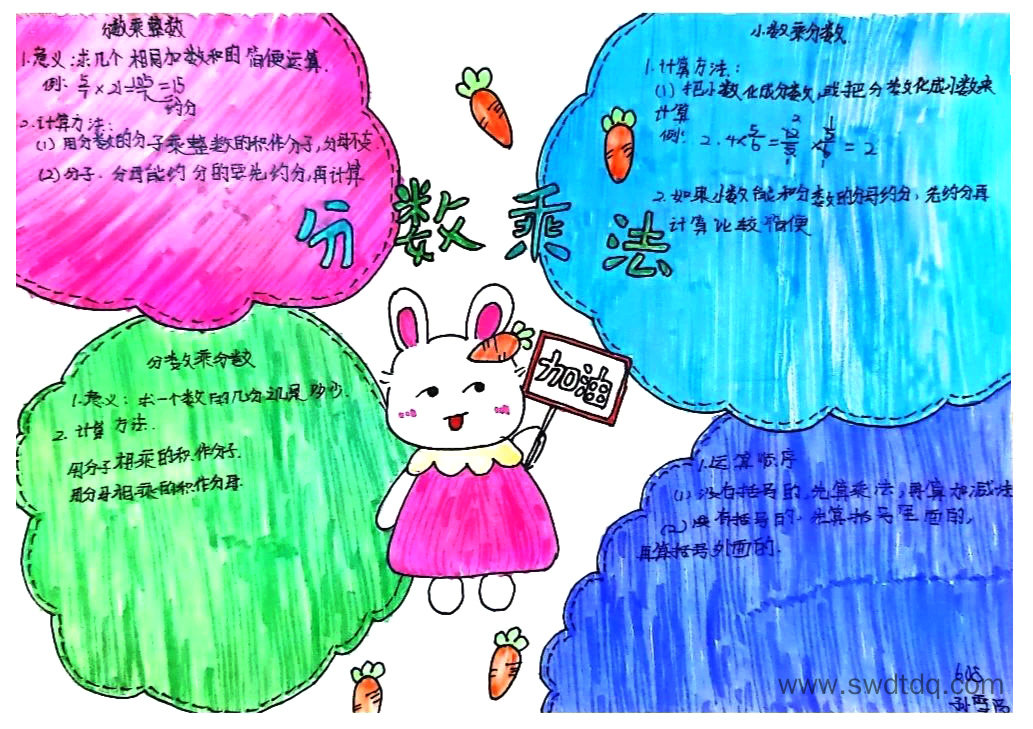 分数乘整数
1.意义:求几个相同加数和的简便运算.
例: 5/7 ×21=105/7=15
约分
2.计算方法:
(1) 用分数的分子乘整数的积作分子,分母不变
(2) 分子.分母能约分的要先约分,再计算
小数乘分数
1.计算方法:
(1) 把小数化成分数,或把分数化成小数来
计算
例: 2.4×5/6= = 2
2.如果小数能和分数的分母约分,先约分再
计算比较简便
分数乘法
加油
分数乘分数
1.意义:求一个数的几分之几是多少.
2.计算方法.
用分子相乘的积作分子.
用分母相乘的积作分母.
1.运算顺序
(1) 没有括号的,先算乘法,再算加减法
(2) 要有括号的.先算括号里面的,
再算括号外面的.
605
孙雪
www.swdtdq.com